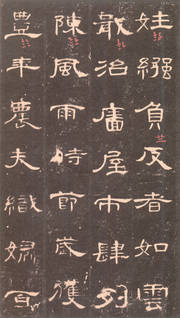 姓繦負反者如雲
戢治廬屋市肆列
陳風雨時節歲獲
豐年農夫織婦百